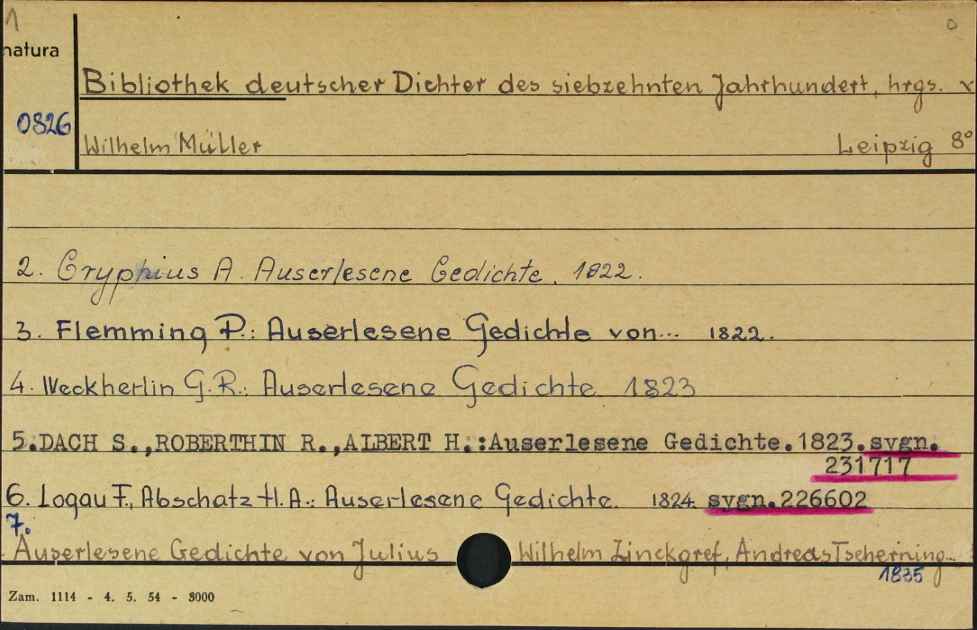 1
natura
Bibliothek deutscher Dichter des siebzehnten Jahrhundert, hrgs. v
0826
Wilhelm Müller Leipzig 8°
2. Gryphius A. Auserlesene Gedichte. 1822.
3. Flemming P.: Auserlesene Gedichte von... 1822.
4. Weckherlin G.R.: Auserlesene Gedichte 1823
5.DACH S.,ROBERTHIN R.,ALBERT H.:Auserlesene Gedichte.1823.sygn.
231717
6. Logau F., Abschatz H.A.: Auserlesene Gedichte. 1824. sygn.226602
7.
Auserlesene Gedichte von Julius Wilhelm Zinckgref, Andreas Tscherning...
1835
Zam. 1114 - 4. 5. 54 - 8000